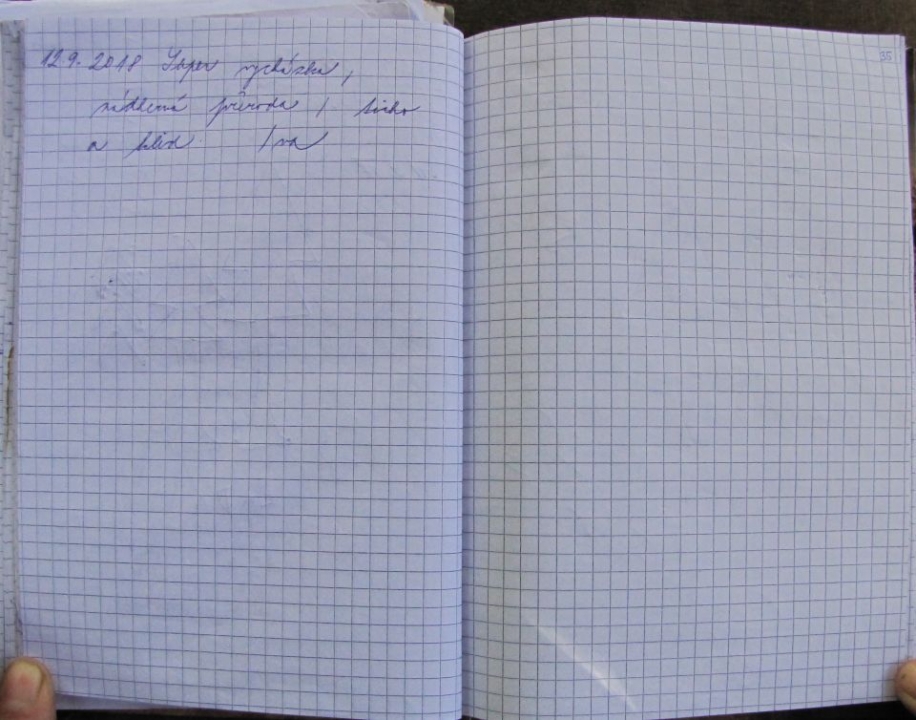 12.9.2018 Super vycházka,
nádherná příroda, ticho
a klid. Iva
35